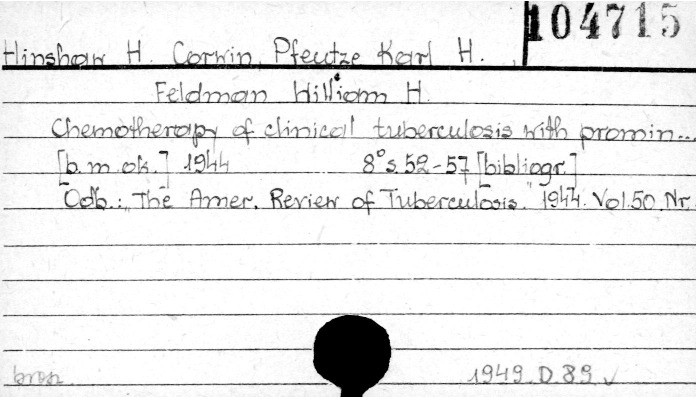 104715
Hinshaw H. Corwin, Pfeutze Karl H.
Feldman William H.
Chemotherapy of clinical tuberculosis with promin...
[b.m.ok.] 1944 8° s.52-57 [bibliogr.]
Odb.: "The Amer. Review of Tuberculosis." 1944. Vol.50. Nr.
brosz.
1949.D.89